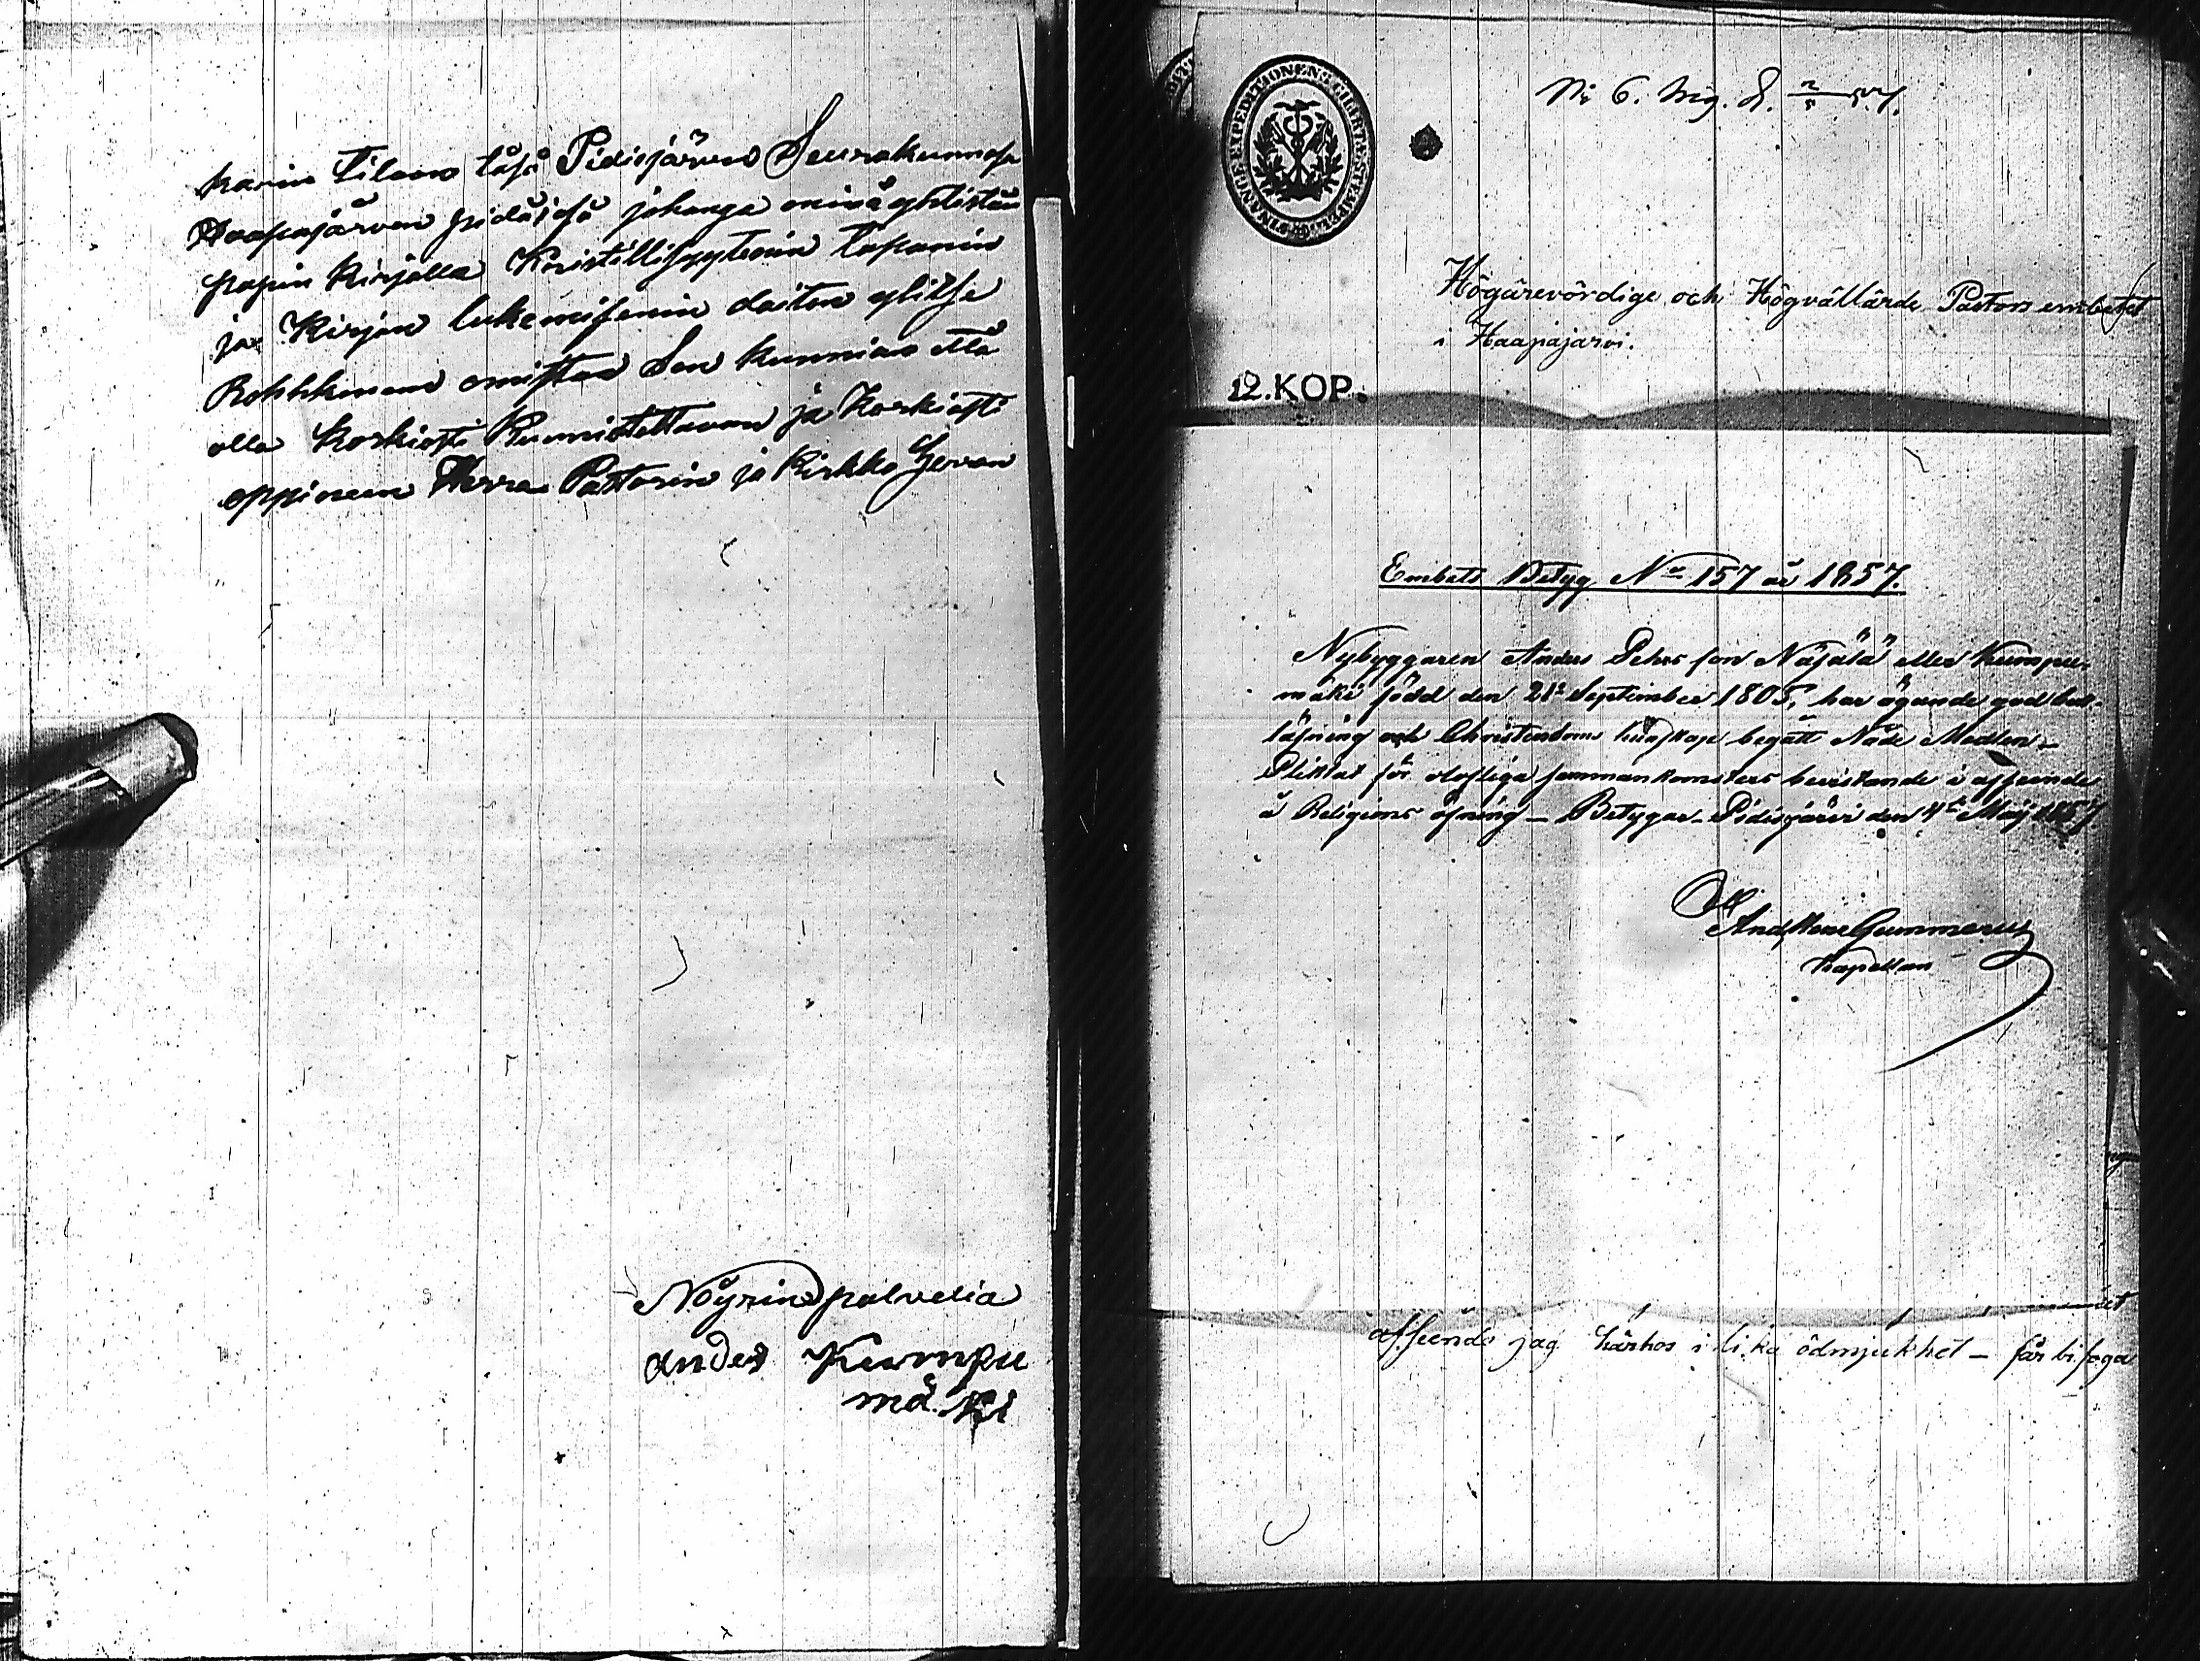 karin Tilans täsä Pidisjärven Seurakunnasa
Haapajärven pidäjäsä johonga minä yhtistän
papin kirjalla Kristillisyytenin tapanin
ja Kirjan lukemisenin daiton ylitse
Rohhkenen omistaa Sen kunnian että
olla korkiasti Kunnistettavan ja korkiasti
oppineen Herra Pastorin ja Kirkko Herran
Nöyrin palvelia
anders Kumpu
mä ki
FINANCE EXPEDITIONENS CHARTÆ STEMPEL
No 6. Ing. d. 2/5 57.
Högärevördige och Högvällärde Pastors embetet
i Haapajärvi.
12.KOP.
Embets Betyg No 157 år 1857.
Nybyggaren Anders Pehrs son Näjälä eller Kumpu-
mäki född den 21 September 1805, har ägande god bok-
läsning och Christendoms kunskap begått Nåde Medlen -
Pliktat för olofliga sammankomsters bevistande i afseende
å Religions öfning - Betygar - Pidisjärvi den 4de Maj 1857
And. Gummerus
Kapellan
afseende jag härhos i lika ödmjukhet - får bifoga